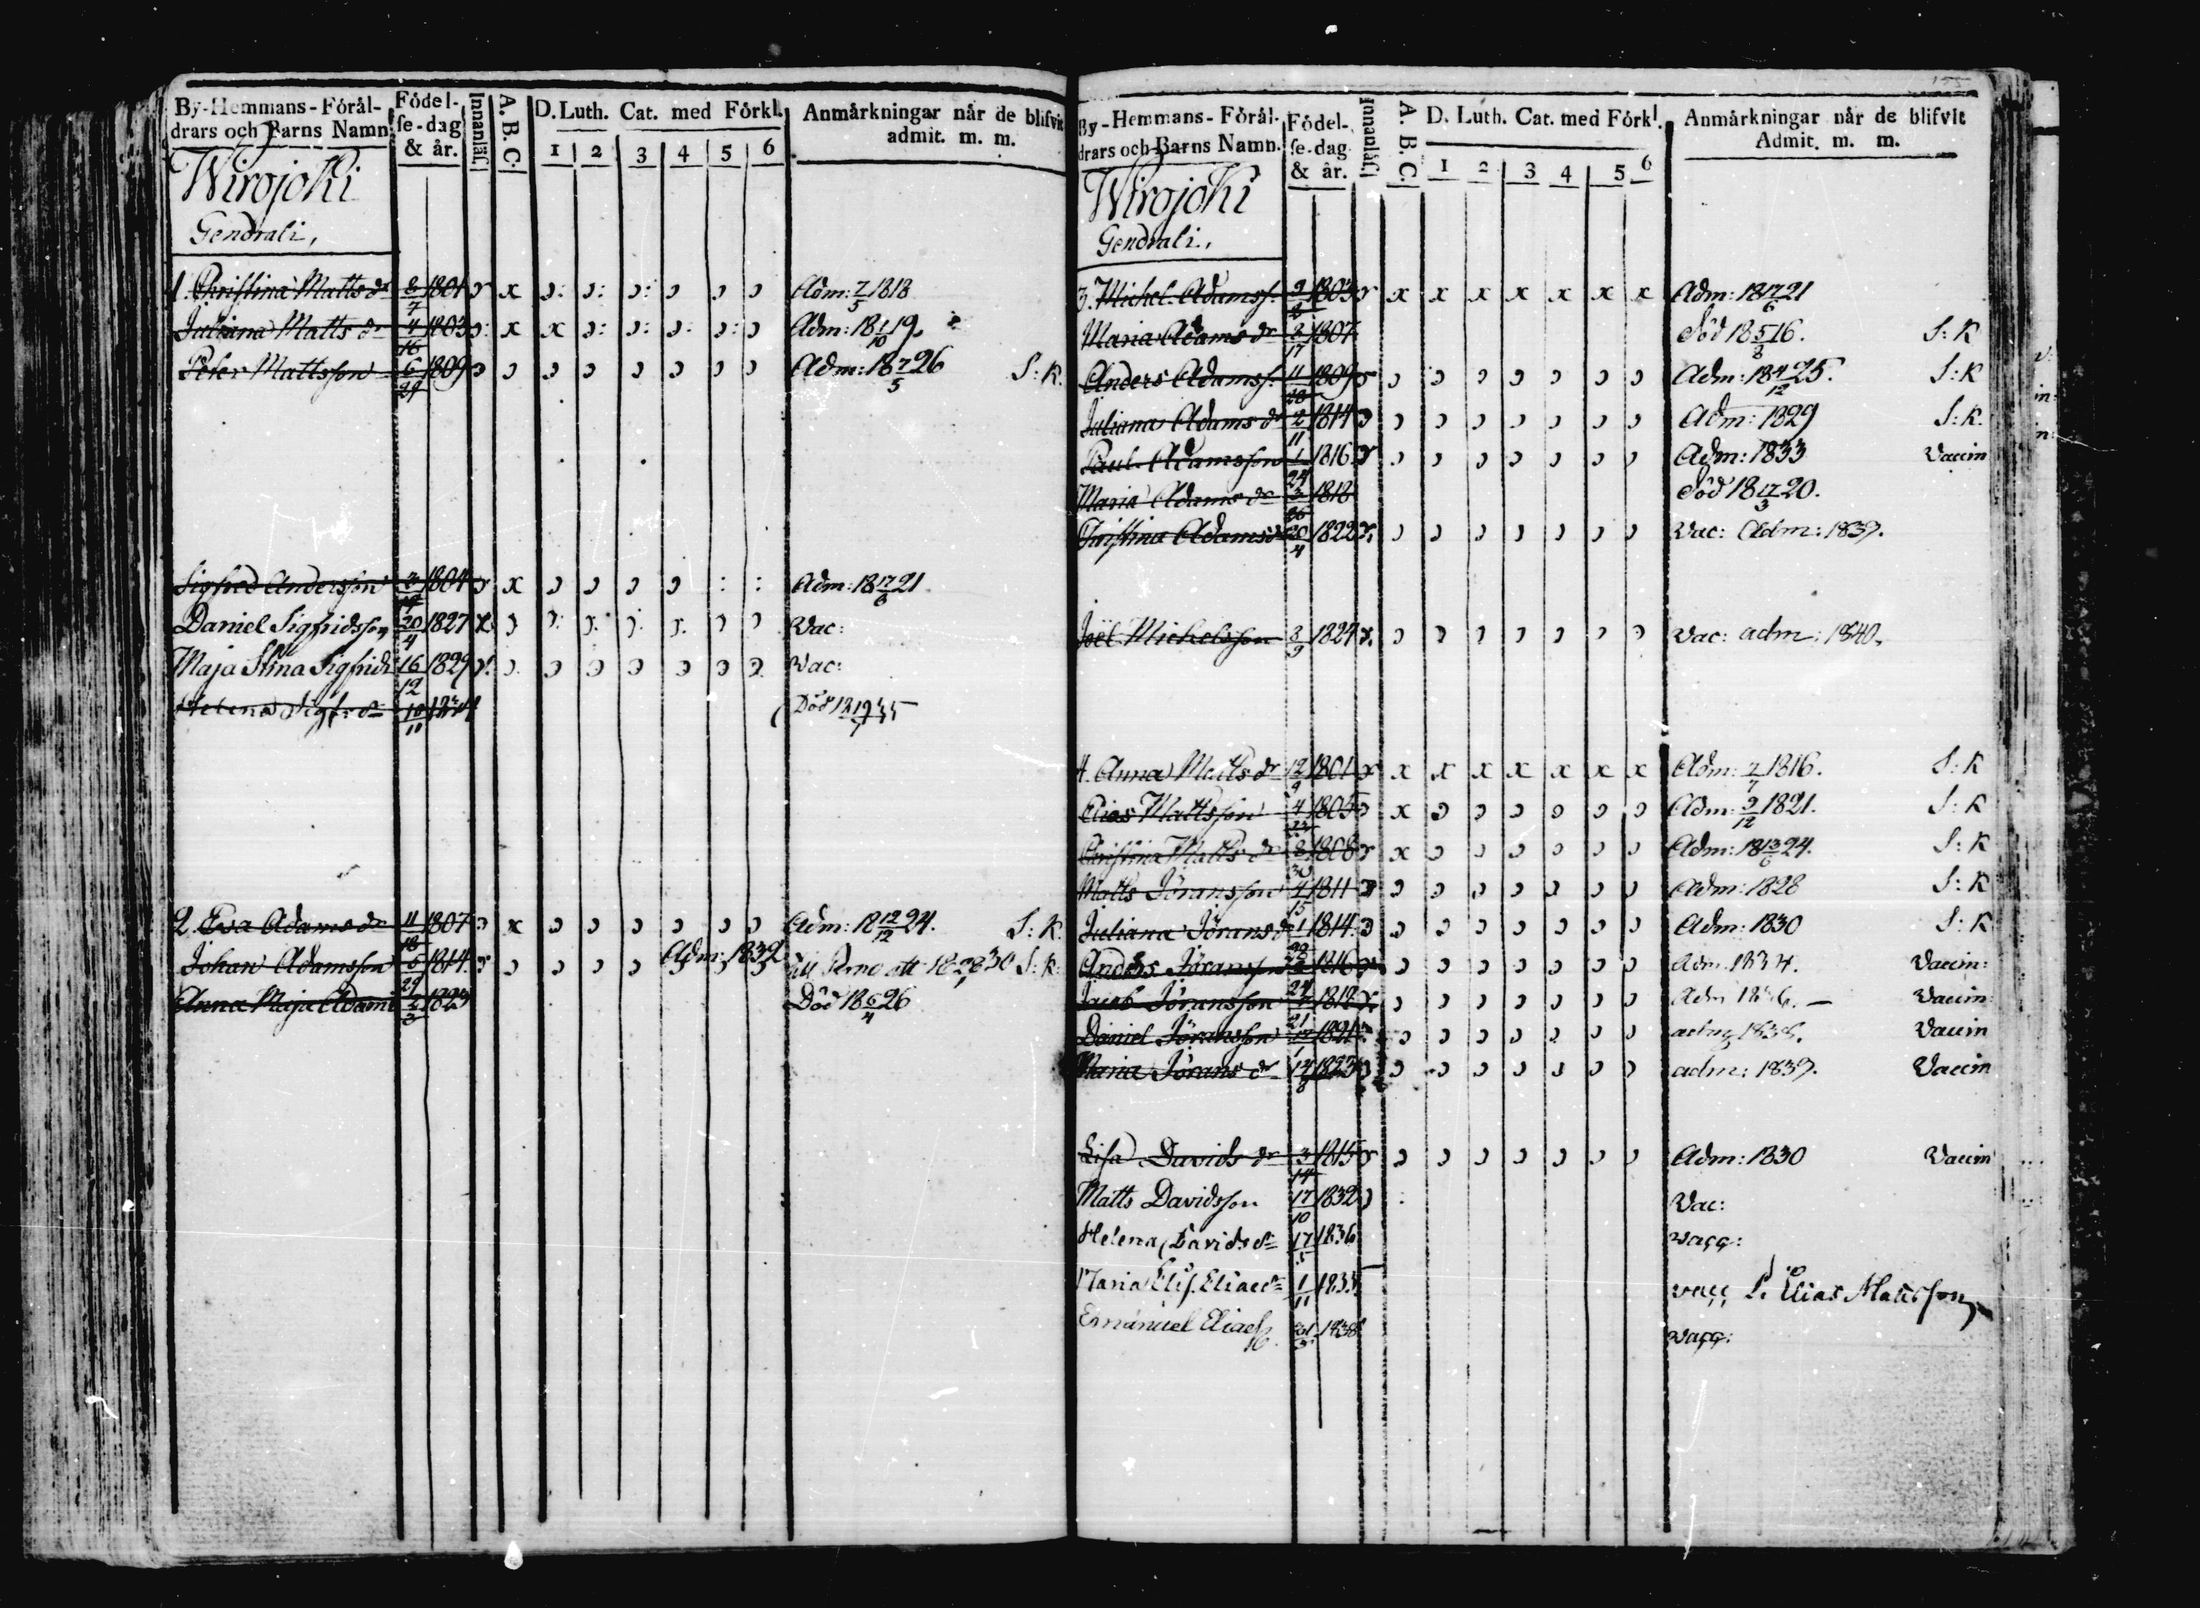 By-Hemmans-Förål-
drars och Barns Namn.
Födel-
se-dag
& år.
Innanläs.
A. B. C.
D. Luth. Cat. med Förkl.
1 2 3 4 5 6
Anmärkningar når de blifvit
admit. m. m.
Wirojoki
Gendrali,
1. Christina Matts dr 8/7 1801 x Adm: 7/5 1818
Juliana Matts dr 4/16 1803 x x Adm: 18 1/10 19.
Peter Mattsson 6/29 1809 Adm: 18 7/5 26 S: K.
Sigfred Andersson 1804 x Adm: 18 17/6 21
Daniel Sigfridsson 20/4 1827 Vac:
Maja Stina Sigfridsdr 16/12 1829 Vac:
Helena Sigfr: dr 10/10 Död 18 19/7 35
2. Eva Adams dr 11/18 1807 x Adm: 18 12/12 24. S: K.
Johan Adamsson 5/29 1814 Adm: 1832 S: K:
Anna Maja Adams 2/3 1823 Död 18 6/4 26
By-Hemmans-Förål-
drars och Barns Namn.
Födel-
se-dag
& år.
Innanläs.
A. B. C.
D. Luth. Cat. med Förkl.
1 2 3 4 5 6
Anmärkningar når de blifvit
Admit. m. m.
Wirojoki
Gendrali,
3. Michel Adamss. 9/8 1803 x x x x x x x Adm: 18 17/6 21
Maria Adams dr 2/17 1807 död 18 5/8 16. S: K
Anders Adamss. 11/28 1809 Adm: 18 4/12 25. S: K
Juliana Adams dr 2/11 1814 Adm: 1829 S: K.
Paul Adamsson 1/24 1816 Adm: 1833 Vaccin
Maria Adams dr 3/26 1818 död 18 17/3 20.
Christina Adamsdr 20/4 1822 Vac: Adm: 1839.
Joël Michelsson 3/9 1824 Vac: adm: 1840.
4. Anna Matts dr 12/9 1801 x x x x x x x Adm: 7/7 1816. S: K
Elias Mattsson 4 1805 x Adm: 9/12 1821. S: K
Christina Matts dr 8/30 1808 x Adm: 18 13/6 24. S: K
Matts Jöransson 4/15 1811 Adm: 1828 S: K
Juliana Jörans dr 1 1814 Adm: 1830 S: K
Anders Jöransson 1816 Adm. 1834. Vaccin:
Jacob Jöransson 1818 Adm 1836. — Vaccin:
Daniel Jöransson 1821 adm 1838. Vaccin
Maria Jörans dr 14/8 1823 adm: 1839. Vaccin
Lisa Davids dr 3/14 1815 Adm: 1830 Vaccin
Matts Davidsson 17/10 1832 Vac:
Helena Davids dr 17/5 1836 vacc:
Maria Elis. Eliaedr 1/11 1833 vacc Elias Mattsson
Emanuel Eliaes 1838 vacc: